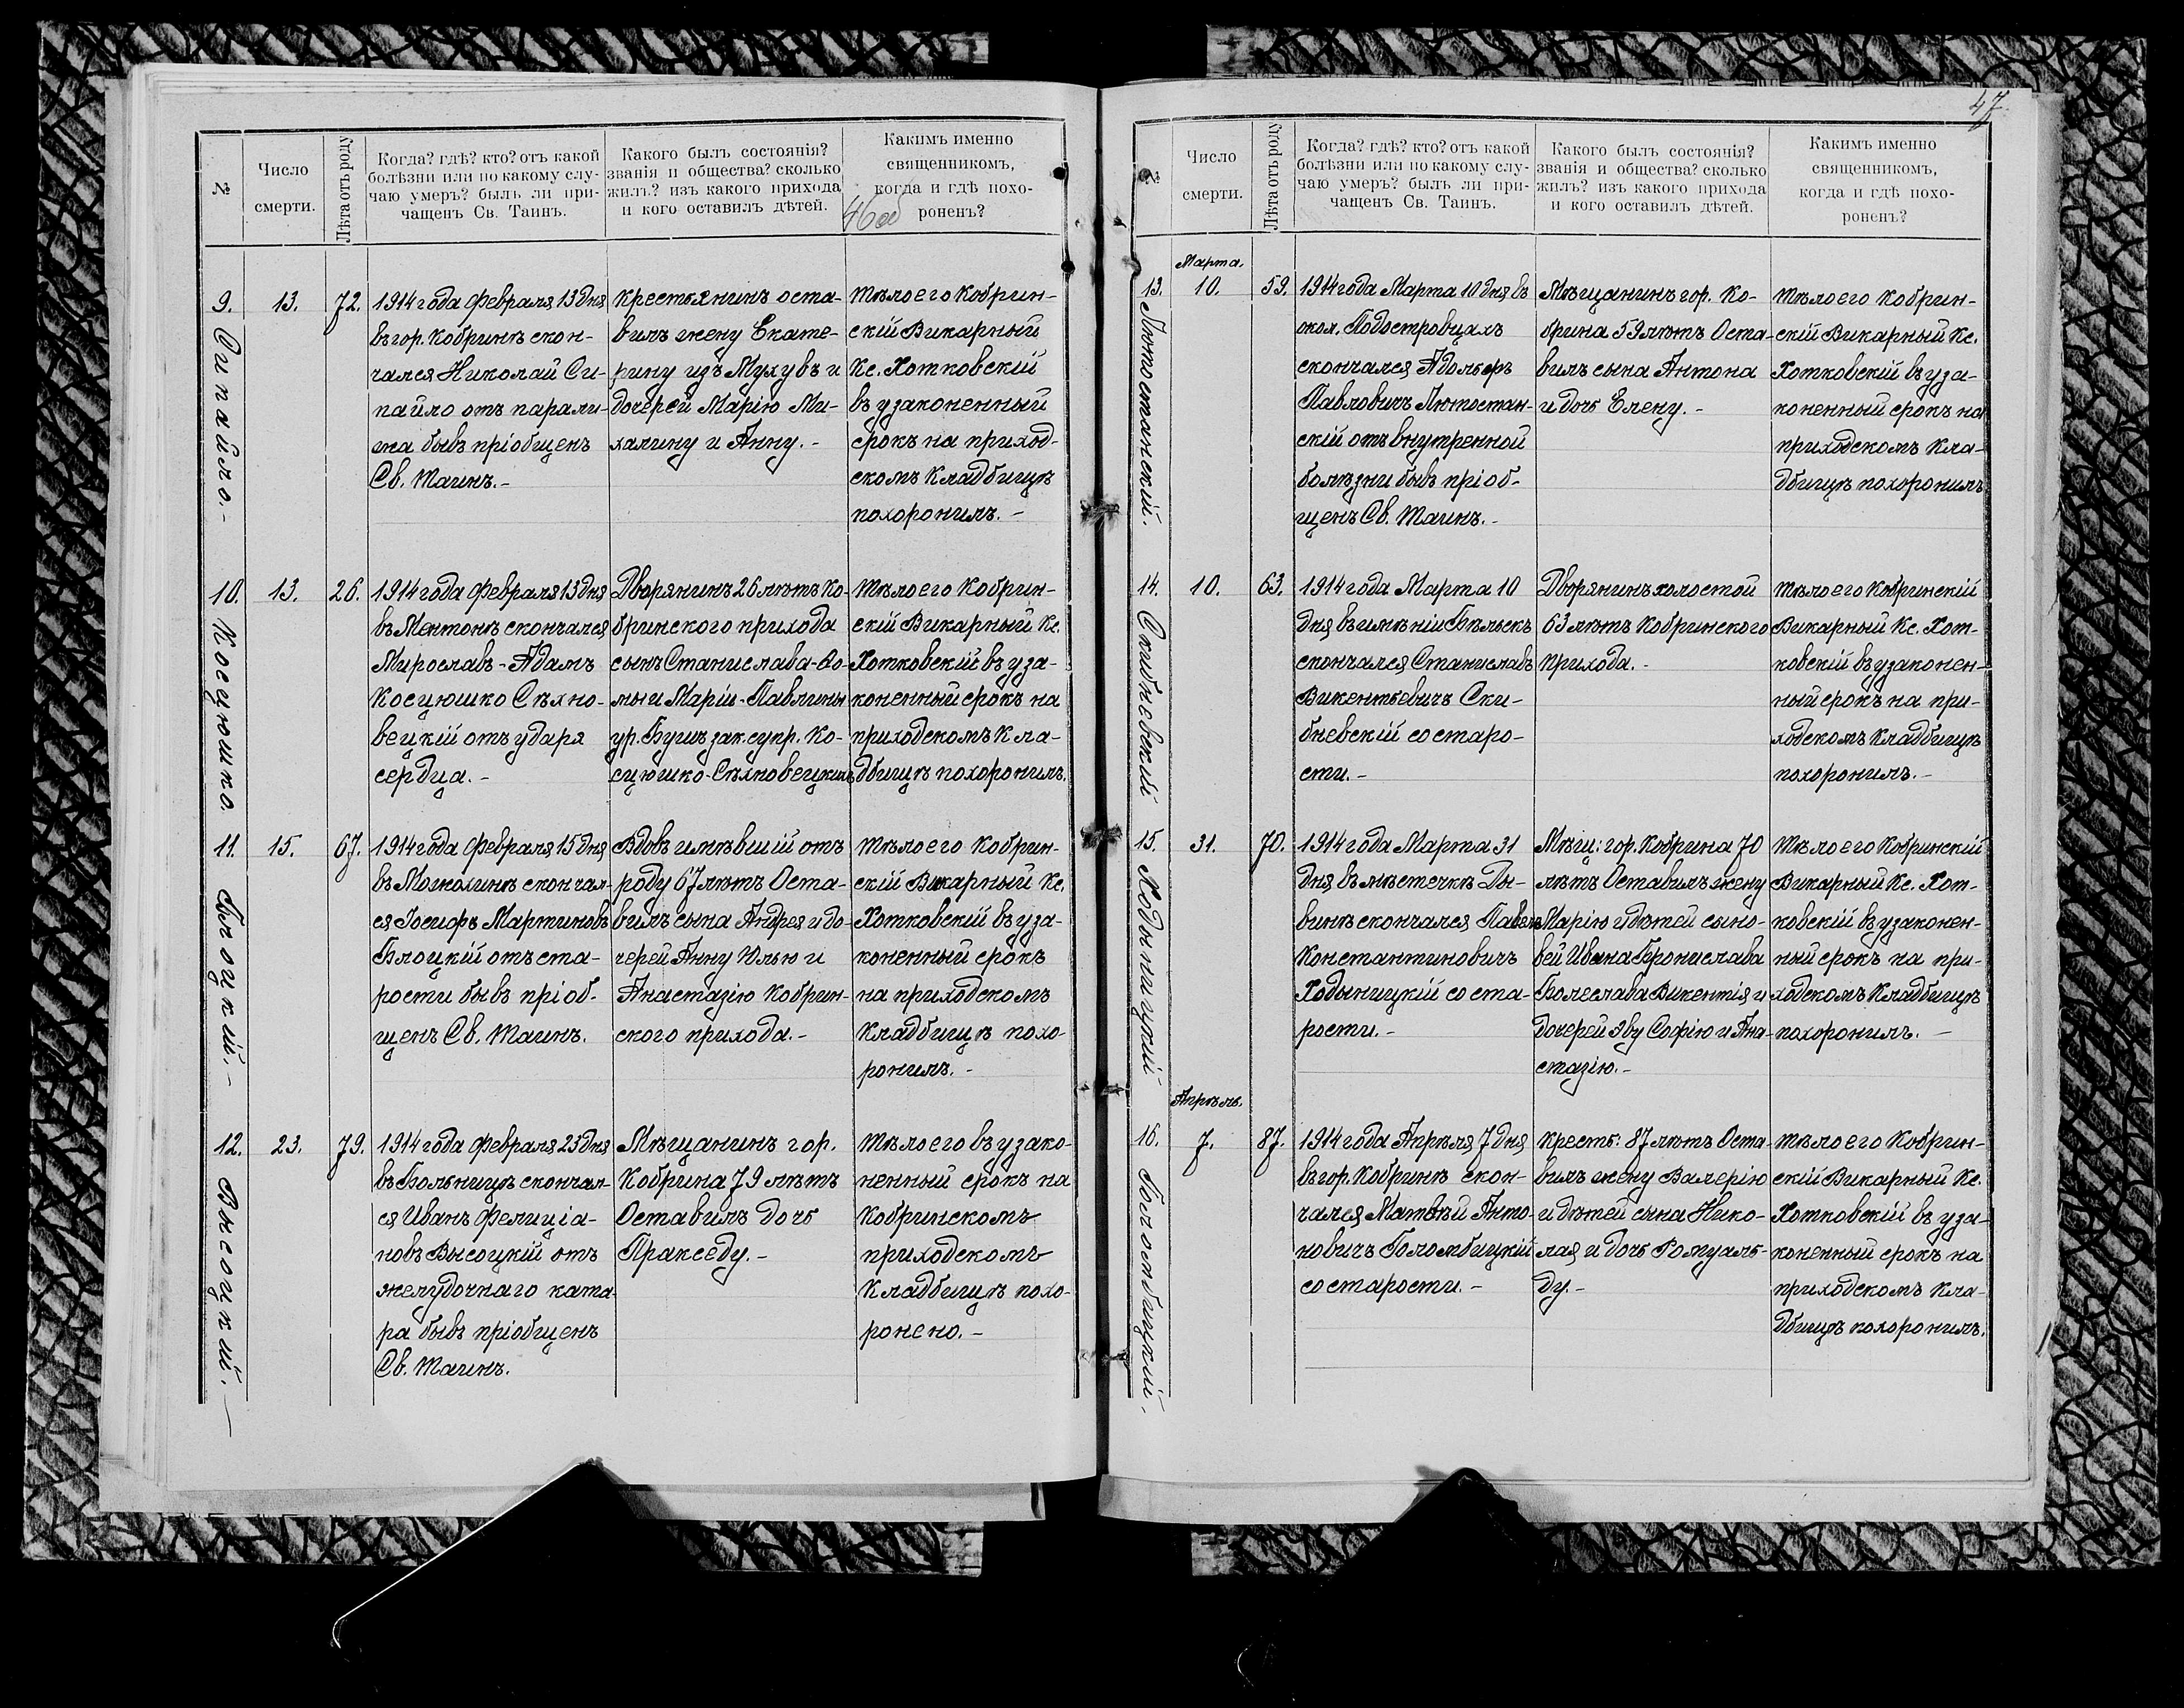 47
46 об
№
Число смерти.
Лѣта отъ роду
Когда? гдѣ? кто? отъ какой
болѣзни или по какому слу-
чаю умеръ? былъ ли при-
чащенъ Св. Таинъ.
Какого былъ состоянія?
званія и общества? сколько
жилъ? изъ какого прихода
и кого оставилъ дѣтей.
Какимъ именно
священникомъ,
когда и гдѣ похо-
роненъ?
9.
Сипайло.-
13.
72.
1914 года Февраля 13 дня
въ гор. Кобринѣ скон-
чался Николай Си-
пайло отъ парали-
жа бывъ пріобщенъ
Св. Таинъ.-
Крестьянинъ оста-
вилъ жену Екате-
рину изъ Мухувъ и
дочерей Марію Ми-
халину и Анну.-
Тѣло его Кобрин-
скій Викарный
Кс. Хотковскій
въ узаконенный
срокъ на приход-
скомъ кладбищѣ
похоронилъ.-
10.
Косцюшко.
13.
26.
1914 года Февраля 13 дня
въ Ментонѣ скончался
Мирославъ-Адамъ
Косцюшко Сѣхно-
вецкій отъ ударя
сердца.-
Дворянинъ 26 лѣтъ Ко-
бринского прихода
сынъ Станислава-Ѳо-
мы и Маріи-Павлины
ур. Бушъ зак. супр. Ко-
сцюшко-Сѣхновецкихъ
Тѣло его Кобрин-
скій Викарный Кс.
Хотковскій въ уза-
коненный срокъ на
приходскомъ кла-
дбищѣ похоронилъ.
11.
Блоцкій.-
15.
67.
1914 года Февраля 15 дня
въ Могюлинѣ скончал-
ся Іосифъ Мартиновъ
Блоцкій отъ ста-
рости бывъ пріоб-
щенъ Св. Таинъ.
Вдовъ имѣвшій отъ
роду 67 лѣтъ Оста-
вилъ сына Андрея и до-
черей Анну Юлью и
Анастазію Кобрин-
ского прихода.-
Тѣло его Кобрин-
скій Викарный Кс.
Хотковскій въ уза-
коненный срокъ
на приходскомъ
кладбищѣ похо-
ронилъ.-
12.
Высоцкій.-
23.
79.
1914 года Февраля 23 дня
въ Больницѣ скончал-
ся Иванъ Фелиціа-
новъ Высоцкій отъ
желудочнаго ката-
ра бывъ пріобщенъ
Св. Таинъ.
Мѣщанинъ гор.
Кобрина 79 лѣтъ
Оставилъ дочь
Пракседу.-
Тѣло его въ узако-
ненный срокъ на
Кобринскомъ
приходскомъ
кладбищѣ похо-
ронено.-
№
Число смерти.
Лѣта отъ роду
Когда? гдѣ? кто? отъ какой
болѣзни или по какому слу-
чаю умеръ? былъ ли при-
чащенъ Св. Таинъ.
Какого былъ состоянія?
званія и общества? сколько
жилъ? изъ какого прихода
и кого оставилъ дѣтей.
Какимъ именно
священникомъ,
когда и гдѣ похо-
роненъ?
Марта.
13.
Лютостанскій.
10.
59.
1914 года Марта 10 дня въ
окол. Подостровцахъ
скончался Адольфъ
Павловичъ Лютостан-
скій отъ внутренной
болѣзни бывъ пріоб-
щенъ Св. Таинъ.-
Мѣщанинъ гор. Ко-
брина 59 лѣтъ Оста-
вилъ сына Антона
и дочь Елену.-
Тѣло его Кобрин-
скій Викарный Кс.
Хотковскій въ уза-
коненный срокъ на
приходскомъ кла-
дбищѣ похоронилъ
14.
Скибневскій
10.
63.
1914 года Марта 10
дня въ имѣніи Бѣльскъ
скончался Станиславъ
Викентьевичъ Ски-
бневскій со старо-
сти.-
Дворянинъ холостой
63 лѣтъ Кобринского
прихода.-
Тѣло его Кобринскій
Викарный Кс. Хот-
ковскій въ узаконен-
ный срокъ на при-
ходскомъ кладбищѣ
похоронилъ.-
15.
Ходыницкій
31.
70.
1914 года Марта 31
дня въ мѣстечкѣ Ды-
винѣ скончался Павелъ
Константиновичъ
Ходыницкій со ста-
рости.-
Мѣщ: гор. Кобрина 70
лѣтъ Оставилъ жену
Марію и дѣтей сыно-
вей Ивана Бронислава
Болеслава Викентія и
дочерей Эву Софію и Ана-
стазію.-
Тѣло его Кобринскій
Викарный Кс. Хот-
ковскій въ узаконен-
ный срокъ на при-
ходскомъ кладбищѣ
похоронилъ.-
Апрѣль.
16.
Голомбицкій.
7.
87.
1914 года Апрѣля 7 дня
въ гор. Кобринѣ скон-
чался Матвѣй Анто-
новичъ Голомбицкій
со старости.-
Кресть: 87 лѣтъ Оста-
вилъ жену Валерію
и дѣтей сына Нико-
лая и дочь Ромуаль-
ду.-
Тѣло его Кобрин-
скій Викарный Кс.
Хотковскій въ уза-
коненный срокъ на
приходскомъ кла-
дбищѣ похоронилъ.